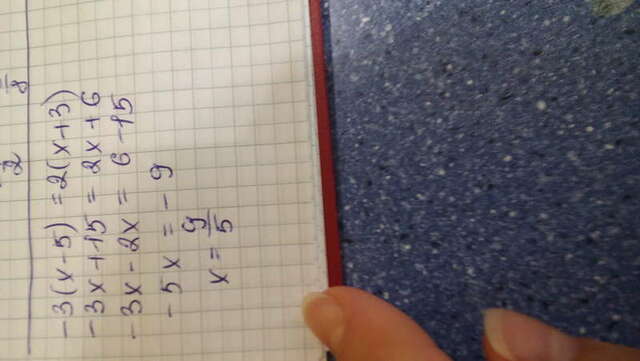 -3(x-5) = 2(x+3)
-3x+15 = 2x+6
-3x-2x = 6-15
-5x = -9
x = 9/5